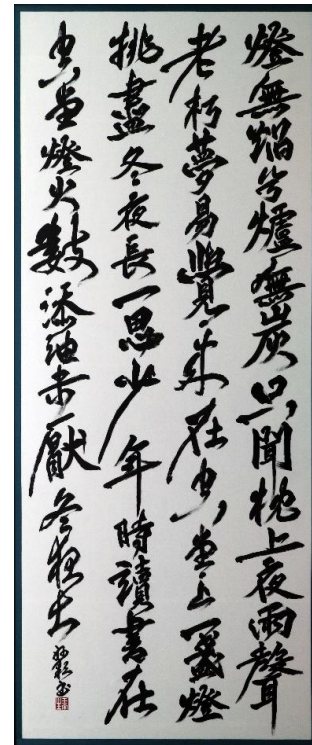 燈無焰兮爐無炭只聞枕上夜雨聲
老朽夢易覺々來在空堂々上一盞燈
挑盡冬夜長一思少年時讀書在
空堂燈火數添油未厭冬夜長
書